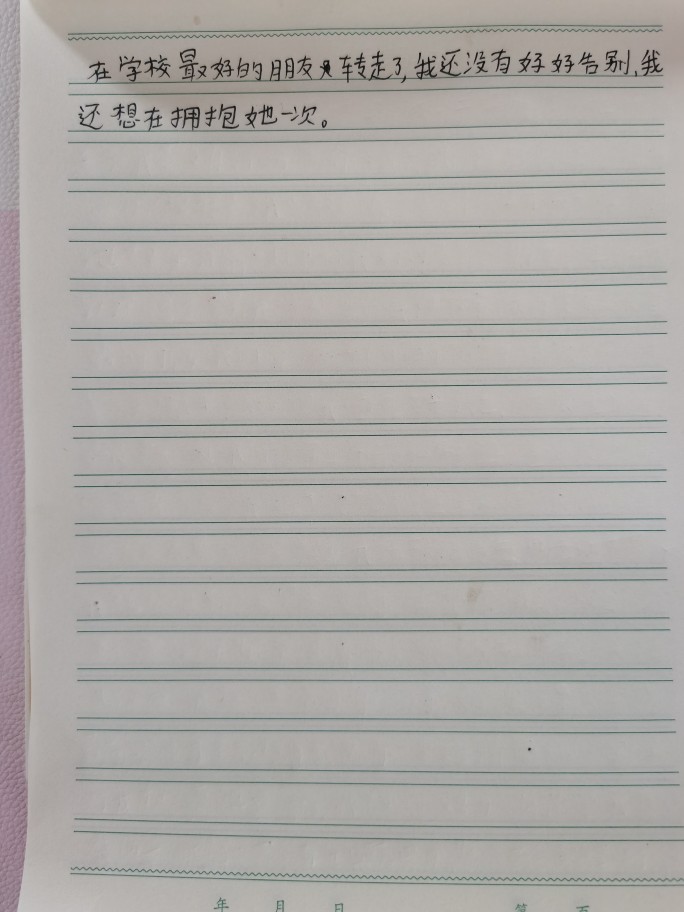 在学校最好的朋友转走了,我还没有好好告别,我
还想在拥抱她一次。
年 月 日 第 页